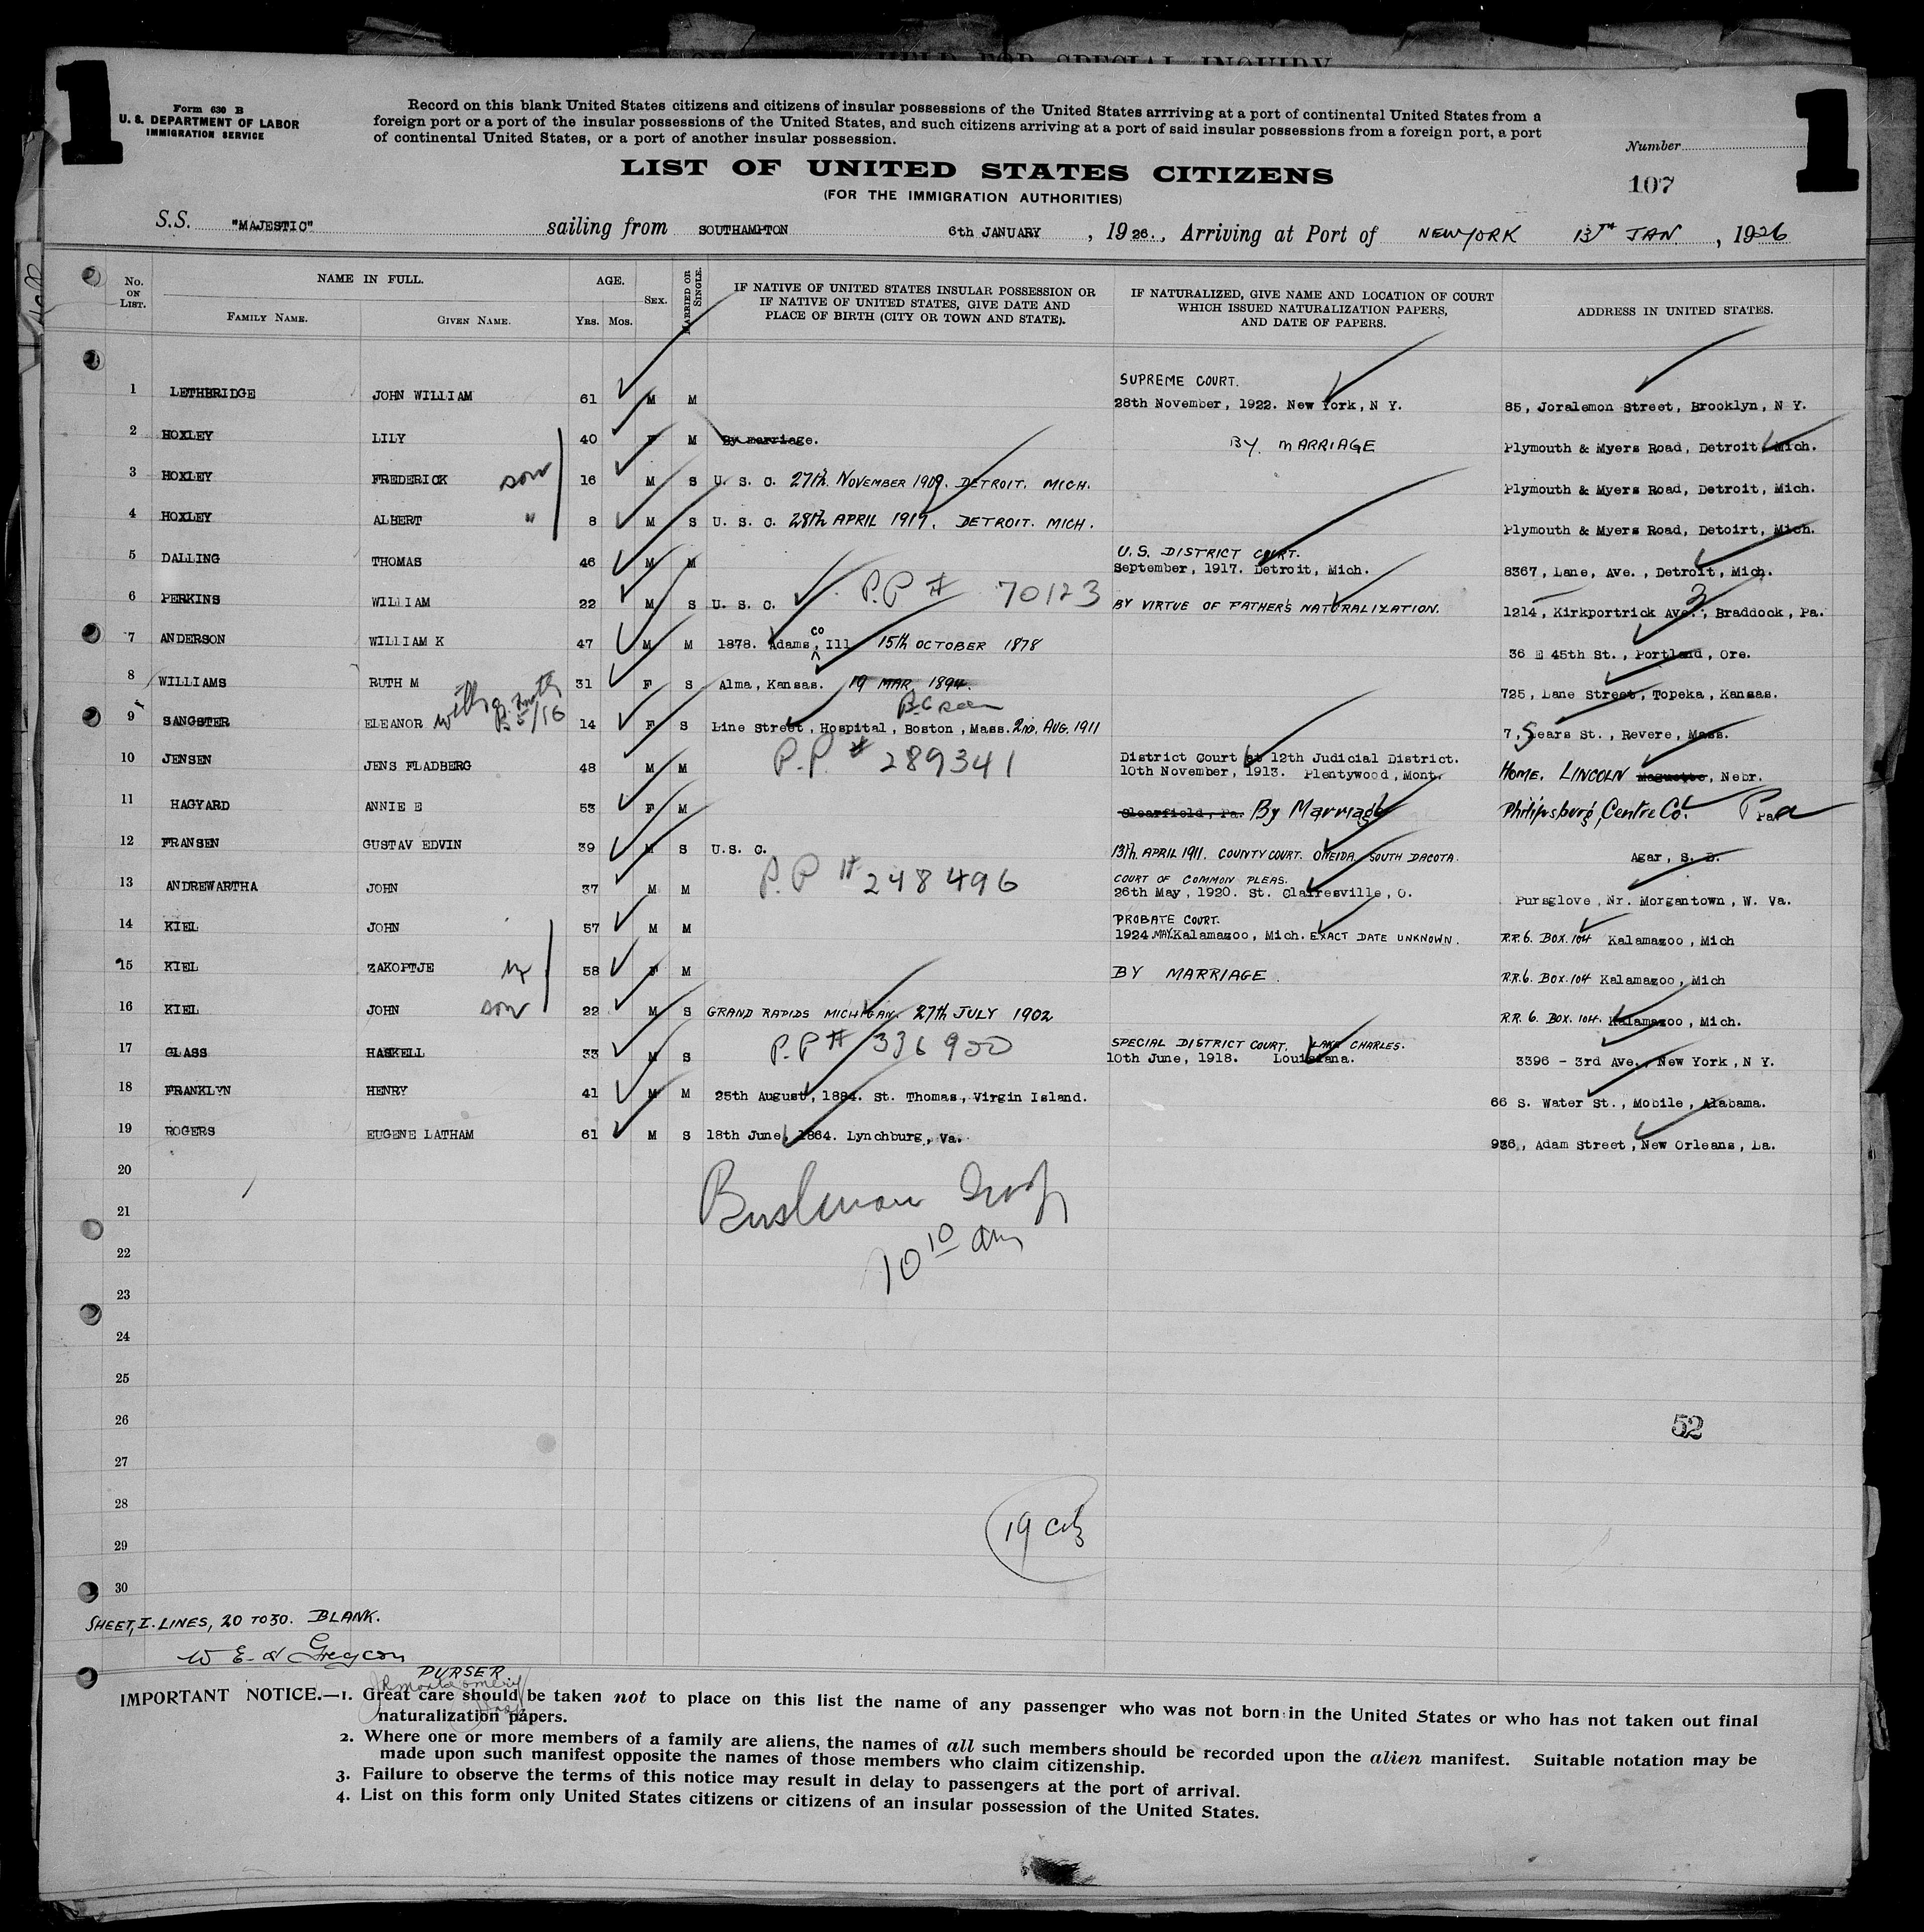 HELD FOR SPECIAL INQUIRY
1
1
Form 630 B
U. S. DEPARTMENT OF LABOR
IMMIGRATION SERVICE
Record on this blank United States citizens and citizens of insular possessions of the United States arrriving at a port of continental United States from a
foreign port or a port of the insular possessions of the United States, and such citizens arriving at a port of said insular possessions from a foreign port, a port
of continental United States, or a port of another insular possession.
Number
107
LIST OF UNITED STATES CITIZENS
(FOR THE IMMIGRATION AUTHORITIES)
S.S. "MAJESTIC" sailing from SOUTHAMPTON 6th JANUARY, 1926., Arriving at Port of NEW YORK 13TH JAN, 1926
No. ON LIST. NAME IN FULL. FAMILY NAME. GIVEN NAME. AGE. Yrs. Mos. SEX. MARRIED OR SINGLE.
IF NATIVE OF UNITED STATES INSULAR POSSESSION OR IF NATIVE OF UNITED STATES, GIVE DATE AND PLACE OF BIRTH (CITY OR TOWN AND STATE).
IF NATURALIZED, GIVE NAME AND LOCATION OF COURT WHICH ISSUED NATURALIZATION PAPERS, AND DATE OF PAPERS.
ADDRESS IN UNITED STATES.
1 LETHBRIDGE JOHN WILLIAM 61 M M SUPREME COURT. 28th November, 1922. New York, N Y. 85, Joralemon Street, Brooklyn, N Y.
2 HOXLEY LILY 40 F M By marriage. BY MARRIAGE Plymouth & Myers Road, Detroit Mich.
3 HOXLEY FREDERICK son 16 M S U. S. C. 27th. NOVEMBER 1909. DETROIT. MICH. Plymouth & Myers Road, Detroit, Mich.
4 HOXLEY ALBERT " 8 M S U. S. C. 28th APRIL 1917. DETROIT. MICH. Plymouth & Myers Road, Detoirt, Mich.
5 DALLING THOMAS 46 M M U.S. DISTRICT COURT. September, 1917. Detroit, Mich. 8367, Lane, Ave., Detroit, Mich.
6 PERKINS WILLIAM 22 M S U. S. C. P.P # 70123 BY VIRTUE OF FATHER'S NATURALIZATION. 1214, Kirkportrick Ave., Braddock, Pa.
7 ANDERSON WILLIAM K 47 M M 1878. Adams Co, Ill 15th OCTOBER 1878 36 E 45th St., Portland, Ore.
8 WILLIAMS RUTH M 31 F S Alma, Kansas. 19 MAR 1894. 725, Lane Street, Topeka, Kansas.
9 SANGSTER ELEANOR with 14 F S Line Street, Hospital, Boston, Mass. 2nd. AUG. 1911 7, Sears St., Revere, Mass.
10 JENSEN JENS FLADBERG 48 M M P.P. # 289341 District Court at 12th Judicial District. 10th November, 1913. Plentywood, Mont. HOME. LINCOLN, Nebr.
11 HAGYARD ANNIE E 53 F M Clearfield, Pa. By Marriage Philipsburg, Centre Co. Pa
12 FRANSEN GUSTAV EDVIN 39 M S U.S. C. 13th. APRIL 1911. COUNTY COURT. ONEIDA, SOUTH DACOTA. Agar, S. D.
13 ANDREWARTHA JOHN 37 M M P.P # 248496 COURT OF COMMON PLEAS. 26th May, 1920. St. Clairesville, O. Pursglove, Nr. Morgantown, W. Va.
14 KIEL JOHN 57 M M PROBATE COURT. 1924. MAY. Kalamazoo, Mich. EXACT DATE UNKNOWN. R.R.6. BOX. 104 Kalamazoo, Mich
15 KIEL ZAKOPTJE 58 F M BY MARRIAGE. R.R.6. BOX. 104 Kalamazoo, Mich
16 KIEL JOHN son 22 M S GRAND RAPIDS MICHIGAN. 27th JULY 1902 R.R. 6. BOX. 104. Kalamazoo, Mich.
17 GLASS HASKELL 33 M S P.P # 336900 SPECIAL DISTRICT COURT. LAKE CHARLES. 10th June, 1918. Louisiana. 3396 - 3rd Ave., New York, N Y.
18 FRANKLYN HENRY 41 M M 25th August, 1884. St. Thomas, Virgin Island. 66 S. Water St., Mobile, Alabama.
19 ROGERS EUGENE LATHAM 61 M S 18th June, 1864. Lynchburg, Va. 936, Adam Street, New Orleans, La.
20
21
10 10 am
22
23
24
25
26
52
27
28
19 Cit
29
30
SHEET, I. LINES, 20 TO 30. BLANK.
PURSER
IMPORTANT NOTICE.—1. Great care should be taken not to place on this list the name of any passenger who was not born in the United States or who has not taken out final
naturalization papers.
2. Where one or more members of a family are aliens, the names of all such members should be recorded upon the alien manifest. Suitable notation may be
made upon such manifest opposite the names of those members who claim citizenship.
3. Failure to observe the terms of this notice may result in delay to passengers at the port of arrival.
4. List on this form only United States citizens or citizens of an insular possession of the United States.